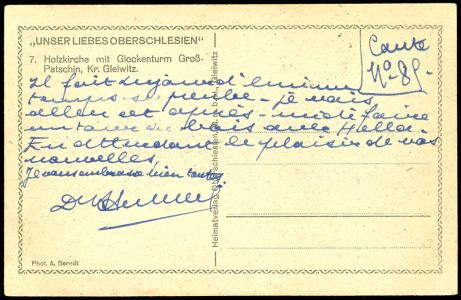 „UNSER LIEBES OBERSCHLESIEN"
7. Holzkirche mit Glockenturm Groß-
Patschin, Kr. Gleiwitz.
Carte
No 85.
Il fait aujourd'hui un
temps superbe - je vais
aller cet après-midi faire
un tour de bois avec Hella.
En attendant le plaisir de vos
nouvelles,
Je vous embrasse bien
Heimatverlag Oberschlesien, G.m.b.H., Gleiwitz
Phot. A. Berndt